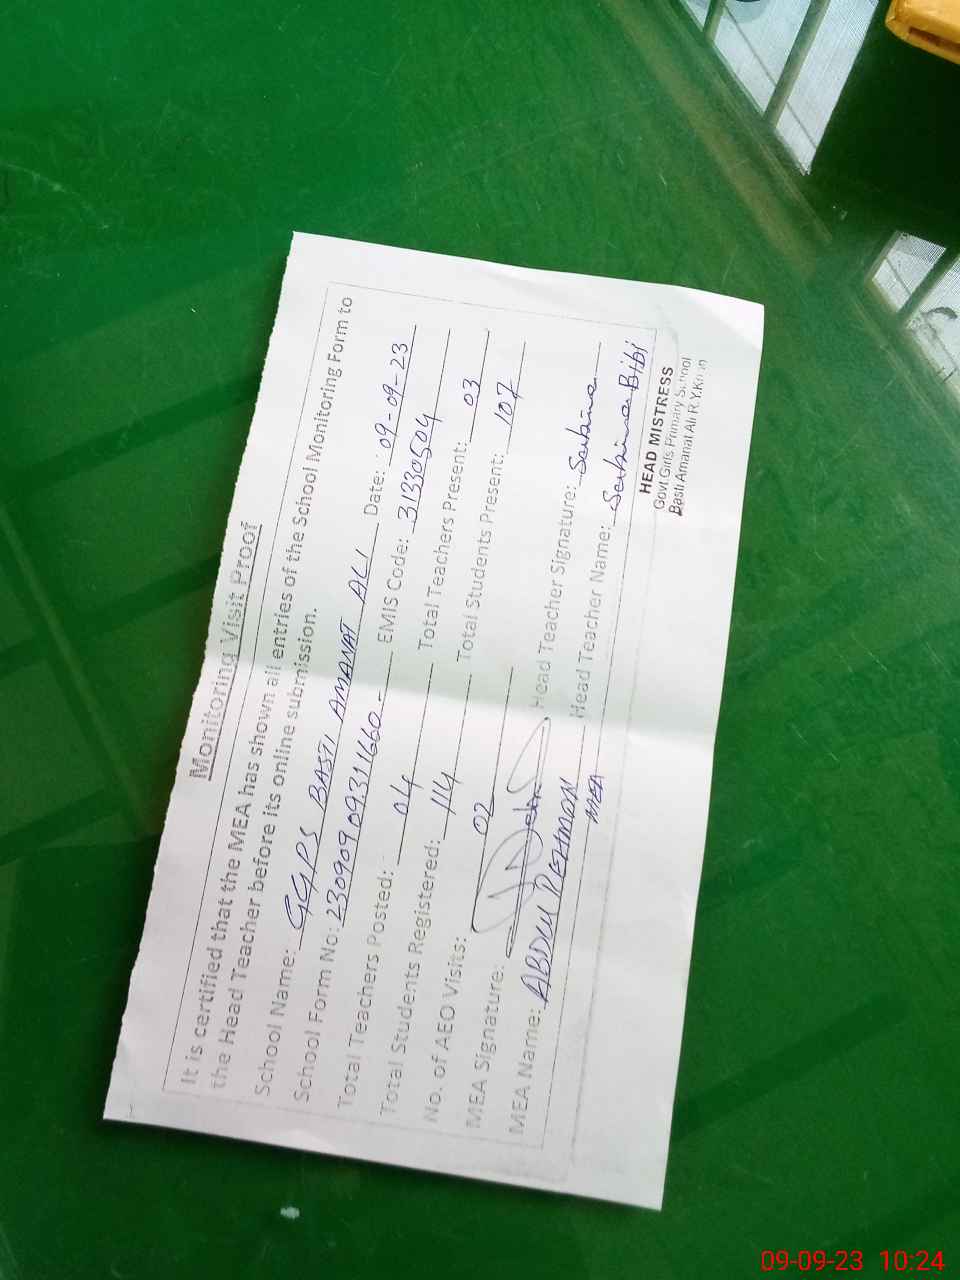 Monitoring Visit Proof
It is certified that the MEA has shown all entries of the School Monitoring Form to
the Head Teacher before its online submission.
School Name: GGPS BASTI AMANAT ALI Date: 09-09-23
School Form No: 23090909311660 EMIS Code: 31330504
Total Teachers Posted: 04 Total Teachers Present: 03
Total Students Registered: 114 Total Students Present: 107
No. of AEO Visits: 02
MEA Signature: Head Teacher Signature: Sakina
MEA Name: ABDUL REHMAN Head Teacher Name: Sakina Bibi
MEA
HEAD MISTRESS
Govt Girls Primary School
Basti Amanat Ali R.Y.Khan
09-09-23 10:24